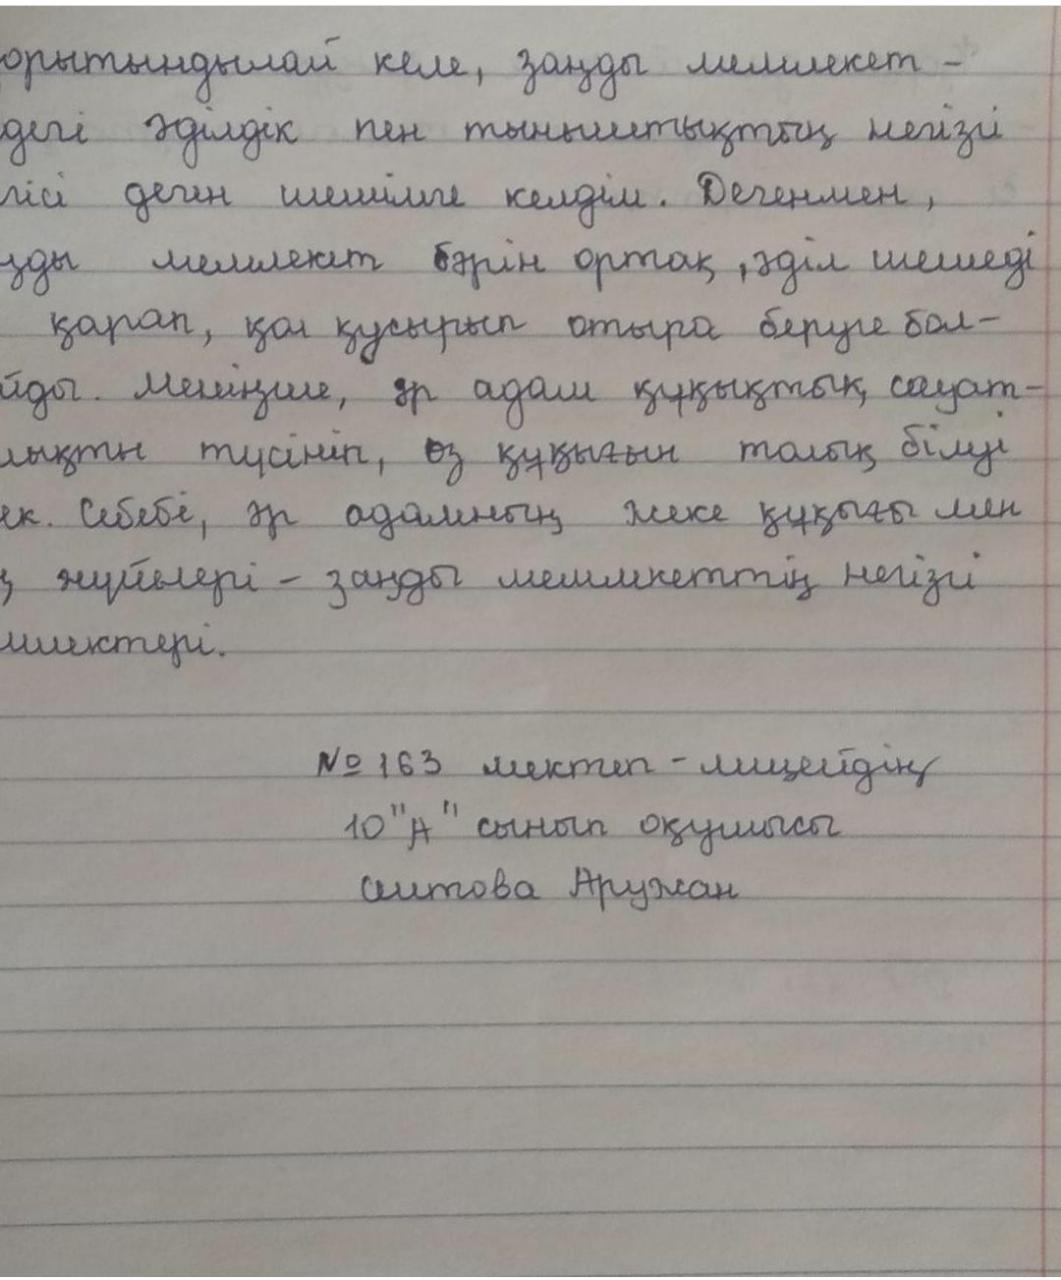 орытындылай келе, заңды мемлекет -
дегі әділдік пен тыныштықтың негізгі
лісі деген шешімге келдім. Дегенмен,
ңды мемлекет бәрін ортақ, әділ шешеді
қарап, қол қусырып отыра беруге бол-
йды. Меніңше, әр адам құқықтық сауат-
лықты түсініп, өз құқығын толық білуі
ек. Себебі, әр адамның жеке құқығы мен
қ жүйелері – заңды мемлекеттің негізгі
шектері.
№ 163 мектеп - лицейдің
10 "А" сынып оқушысы
Сеитова Аружан